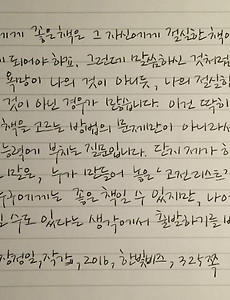 에게 좋은 책은 그 자신에게 절실한 책이
이 되어야 하고, 그런데 말씀하신 것처럼
욕망이 나의 것이 아니듯, 나의 절실함
것이 아닌 경우가 많습니다. 이건 딱히
책을 고르는 방법의 문제만이 아니라서
능력에 부치는 질문입니다. 단지 제가 하
말을, 누가 만들어 놓은 '고전 리스트'가
누구에게는 좋은 책일 수 있지만, 나에
일 수도 있다는 생각에서 출발하기를 바
장정일, 작가, 2016, 한빛비즈, 325쪽